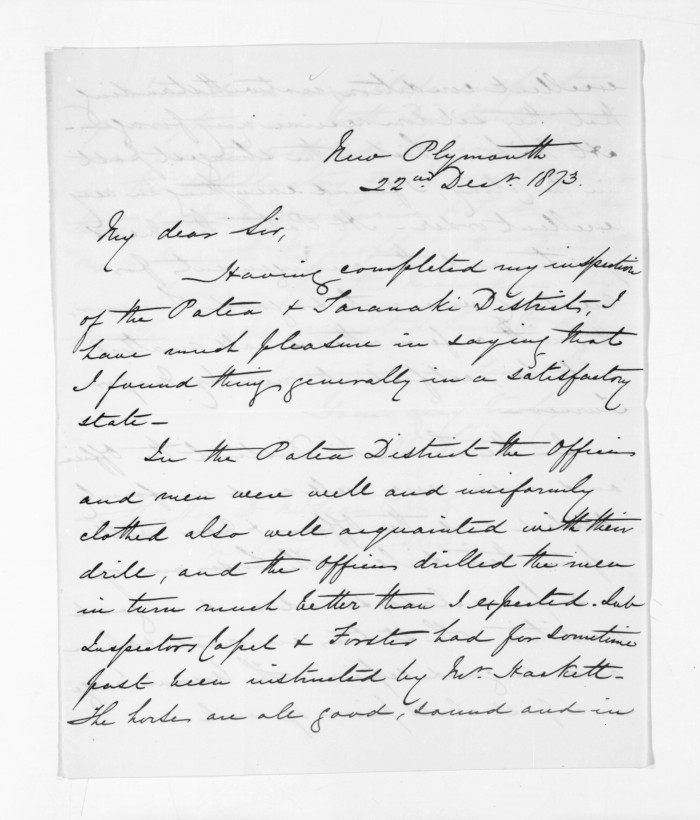 New Plymouth
22nd Decr. 1873.
My dear Sir,
Having completed my inspection
of the Patea & Taranaki Districts, I
have much pleasure in saying that
I found things generally in a satisfactory
state -
In the Patea District the Officers
and men were well and uniformly
clothed also well acquainted with their
drill, and the Officers drilled the men
in turn much better than I expected. Sub
Inspectors Capel & Forster had for sometime
past been instructed by Mr. Hackett -
The horses are all good, sound and in